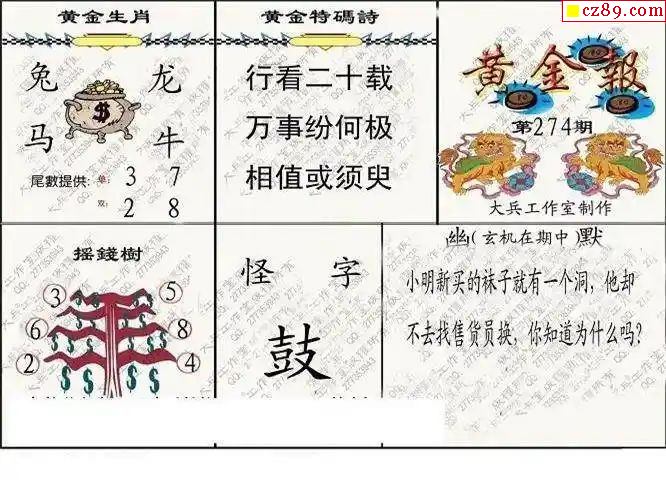 cz89.com
黄金生肖
兔 龙
马 牛
尾數提供: 单: 3 7
双: 2 8
黄金特碼詩
行看二十载
万事纷何极
相值或须臾
黄金報
第274期
大兵工作室制作
摇錢樹
3 5
6 8
2 4
怪 字
鼓
幽(玄机在期中)默
小明新买的袜子就有一个洞，他却
不去找售货员换，你知道为什么吗？